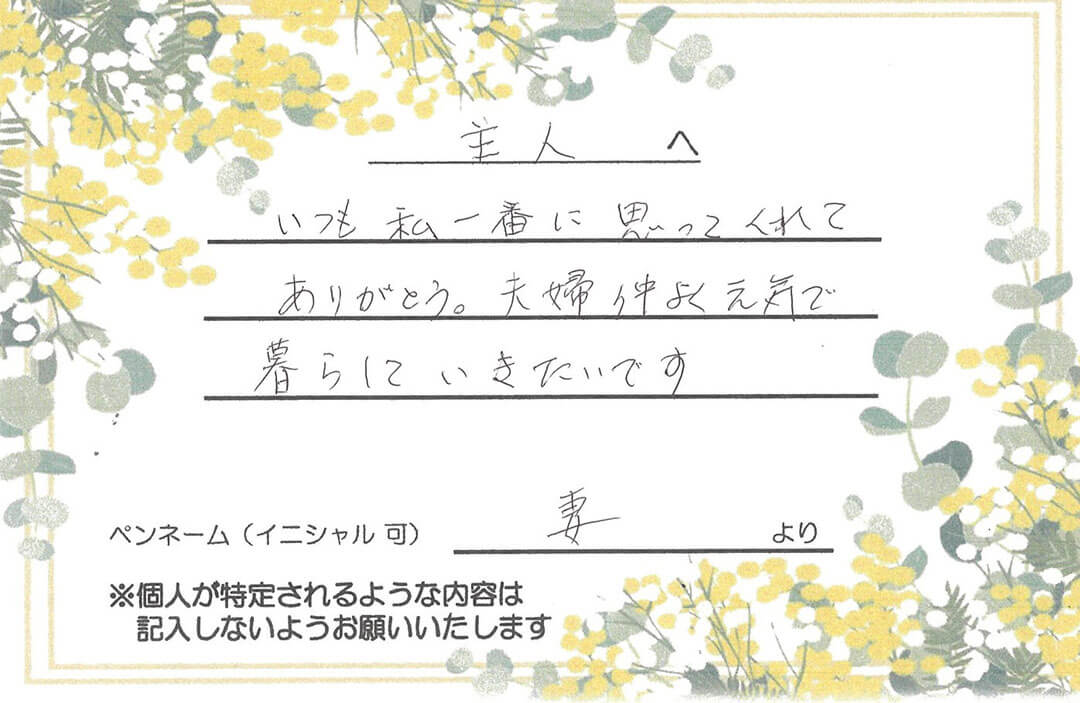 主人 へ
いつも 私一番に 思ってくれて
ありがとう。夫婦仲よく元気で
暮らしていきたいです
ペンネーム(イニシャル 可) 妻 より
※個人が特定されるような内容は
記入しないようお願いいたします